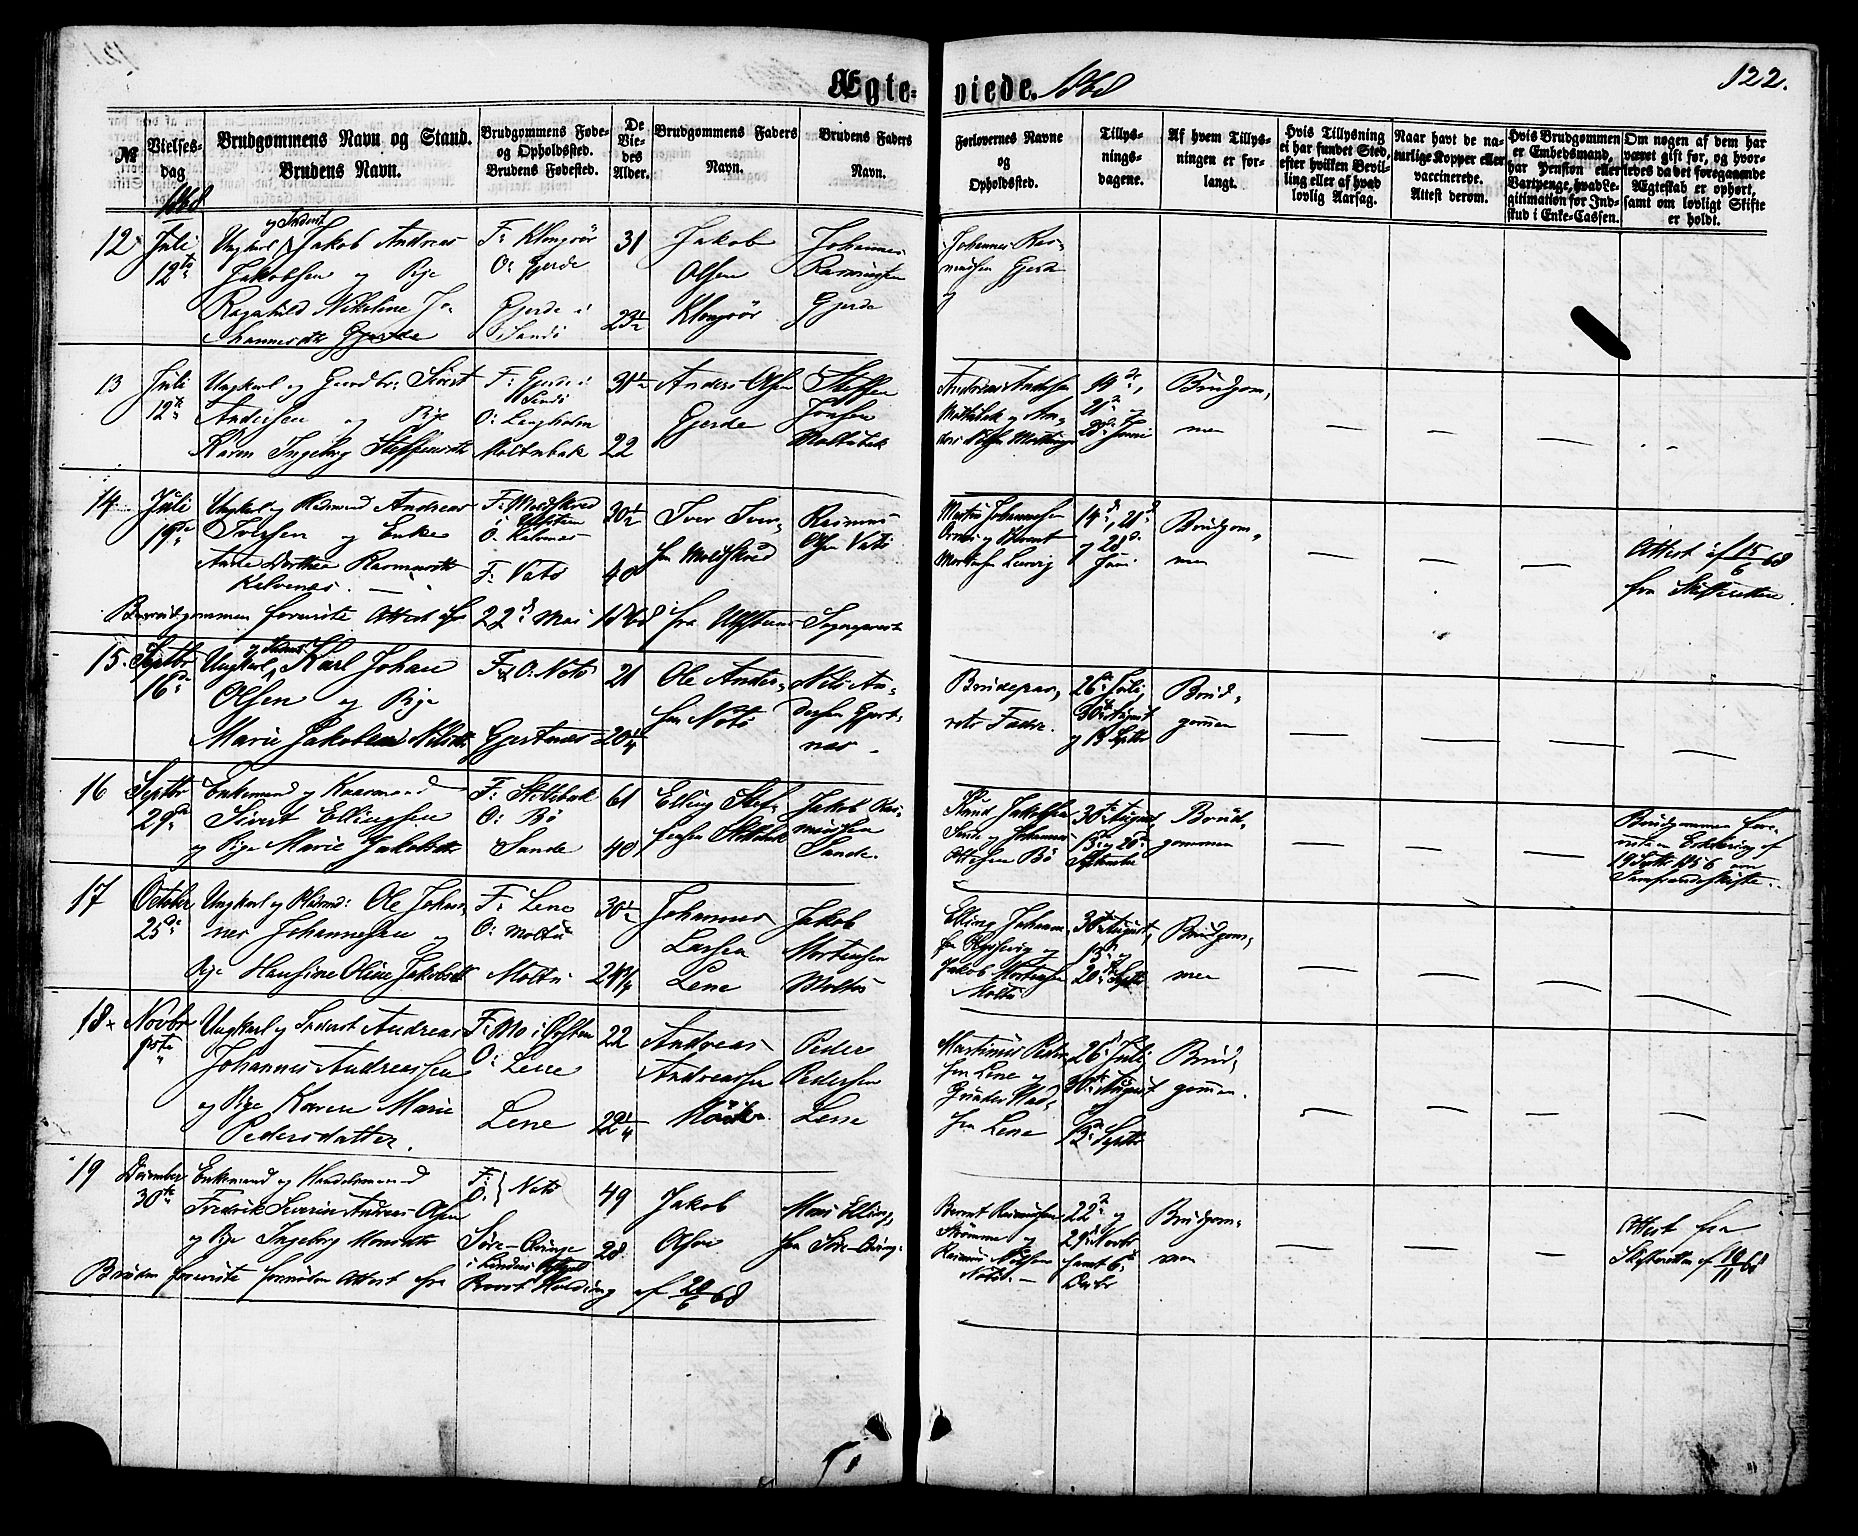 Ægte-
viede. 1868
122.
№
Vielses-
dag
1868.
Brudgommens Navn og Stand.
Brudens Navn.
Brudgommens Føde-
og Opholdssted.
Brudens Fødested.
De
Vie-
des
Alder.
Brudgommens Faders
Navn.
Brudens Faders
Navn.
Forlovernes Navne
og
Opholdssted.
Tillys-
nings-
dagene.
Af hvem Tillys-
ningen er for-
langt.
Hvis Tillysning
ei har fundet Sted,
efter hvilken Bevil-
ling eller af hvad
lovlig Aarsag.
Naar havt de na-
turlige Kopper eller
vaccinerede.
Attest derom.
Hvis Brudgommen
er Embedsmand,
har Pension eller
Vartpenge, hvad Le-
gitimation for Ind-
skud i Enke-Cassen.
Om nogen af dem har
været gift før, og hvor-
ledes da det foregaaende
Ægteskab er ophørt,
samt om lovligt Skifte
er holdt.
12
Juli
12te
og Inderst
Ungkarl Jakob Andreas
Jakobsen og Pige
Ragnhild Nikoline Jo-
hannesdtr Gjerde
F: Klongrör
O: Gjerde
Gjerde i
Sandö
31
23½
Jakob
Olsen
Klongrör
Johannes
Rasmussen
Gjerde
Johannes Ras-
mussen Gjerde
og
13
Juli
12te
Ungkarl og Gaardbr: Sivert
Andersen og Pige
Karen Ingeborg Steffensdtr
F: Gjerde i
Sandö
O: Langholm
Moltubak
31½
22
Anders Olsen
Gjerde
Steffen
Jonsen
Moltubak
Andreas Andersen
Moltubak og An-
ders
14de,
21de og
28de Juni
Brudgom-
men
14
Juli
19de
Ungkarl og Huusmand Andreas
Iversen og Enke
Ane Dorthea Rasmusdtr
Kalvenes.
F: Moldskred
i Ulfsten
O: Kalvenes
F: Vatö
30½
40
Iver Iver-
sen Moldskred
Rasmus
Olsen Vatö
Johannesen
og Bernt
Leervig
14de, 21de
og 28de
Juni
Brudgom-
men
Attest af 15/6 68
fra Skifteretten.
Brudgommen foreviste Attest af 22de Mai 1868 fra Ulfstens Sognepræst
15.
Septbr
16de
og Inderst
Ungkarl Karl Johan
Olsen og Pige
Marie Jakobine Nilsdtr
F & O: Notö
Gjertnes
21
20¼
Ole Ander-
sen Notö
Nils An-
dersen Gjert-
nes.
Brudepar-
rets Fædre.
26de Juli,
30te August
og 13de Septbr
Brud-
gommen
16
Septbr
29de
Enkemand og Kaarmand
Sivert Ellingsen
og Pige Marie Jakobsdtr
F: Skikbak
O: Bö
Sande
61
40
Elling Stef-
fensen
Jakob Ras-
mussen
Sande.
Knud Jakobsen
Sande og Johannes
Ottesen Bö
30te August,
13de og 20de
September
Brud-
gommen
Brudgommen fore-
viste en Erklæring af
19 Septbr 1856 om
Samfrændeskifte.
17
October
25de
Ungkarl og Huusmd: Ole Johan-
nes Johannesen og
Pige Hansine Oline Jakobsdtr
F: Lene
O: Moltu
Moltu
30½
24¼
Johannes
Larsen
Lene
Jakob
Mortensen
Moltu
Elling Johann-
sen og
Jakob Mortensen
Moltu
30te August,
13de og
20de Septbr
Brudgom-
men
18
Novbr
1ste
Ungkarl og Inderst Andreas
Johannes Andreassen
og Pige Karen Marie
Pedersdatter.
F: Mo i Örsten
O: Lene
Lene
22
22¼
Andreas
Andreassen
Peder
Pedersen
Lene
Martinus Peder-
sen Lene og
Lene
26de Juli
30te August
og
13de Septbr
Brud-
gommen.
19
December
30te
Enkemand og Handelsmand
Fredrik Severin Andreas Olsen
og Pige Ingeborg Monsdtr
F:
O: } Notö
Söre-Qvinge
49
28.
Jakob
Olsen
Mons Elling-
sen Söre-Qvinge
Bernt Rasmussen
Strömme og
Rasmus Nilsen
Notö.
22de og
29de Novbr
samt 6te
Decbr
Brudgom-
men
Attest fra
Skifteretten af 10/11 68
Bruden foreviste fornøden Attest fra af 20/6 68